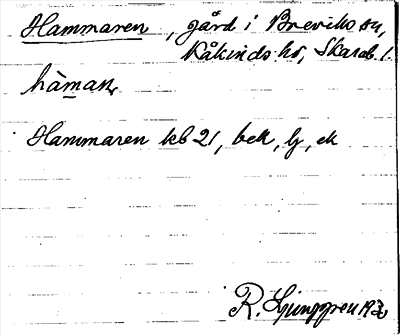 Hammaren, gård i Breviks sn,
Kåkinds hd, Skarab. l.
hàman,
Hammaren kb 21, bek, lj, ek
R. Ljunggren 19